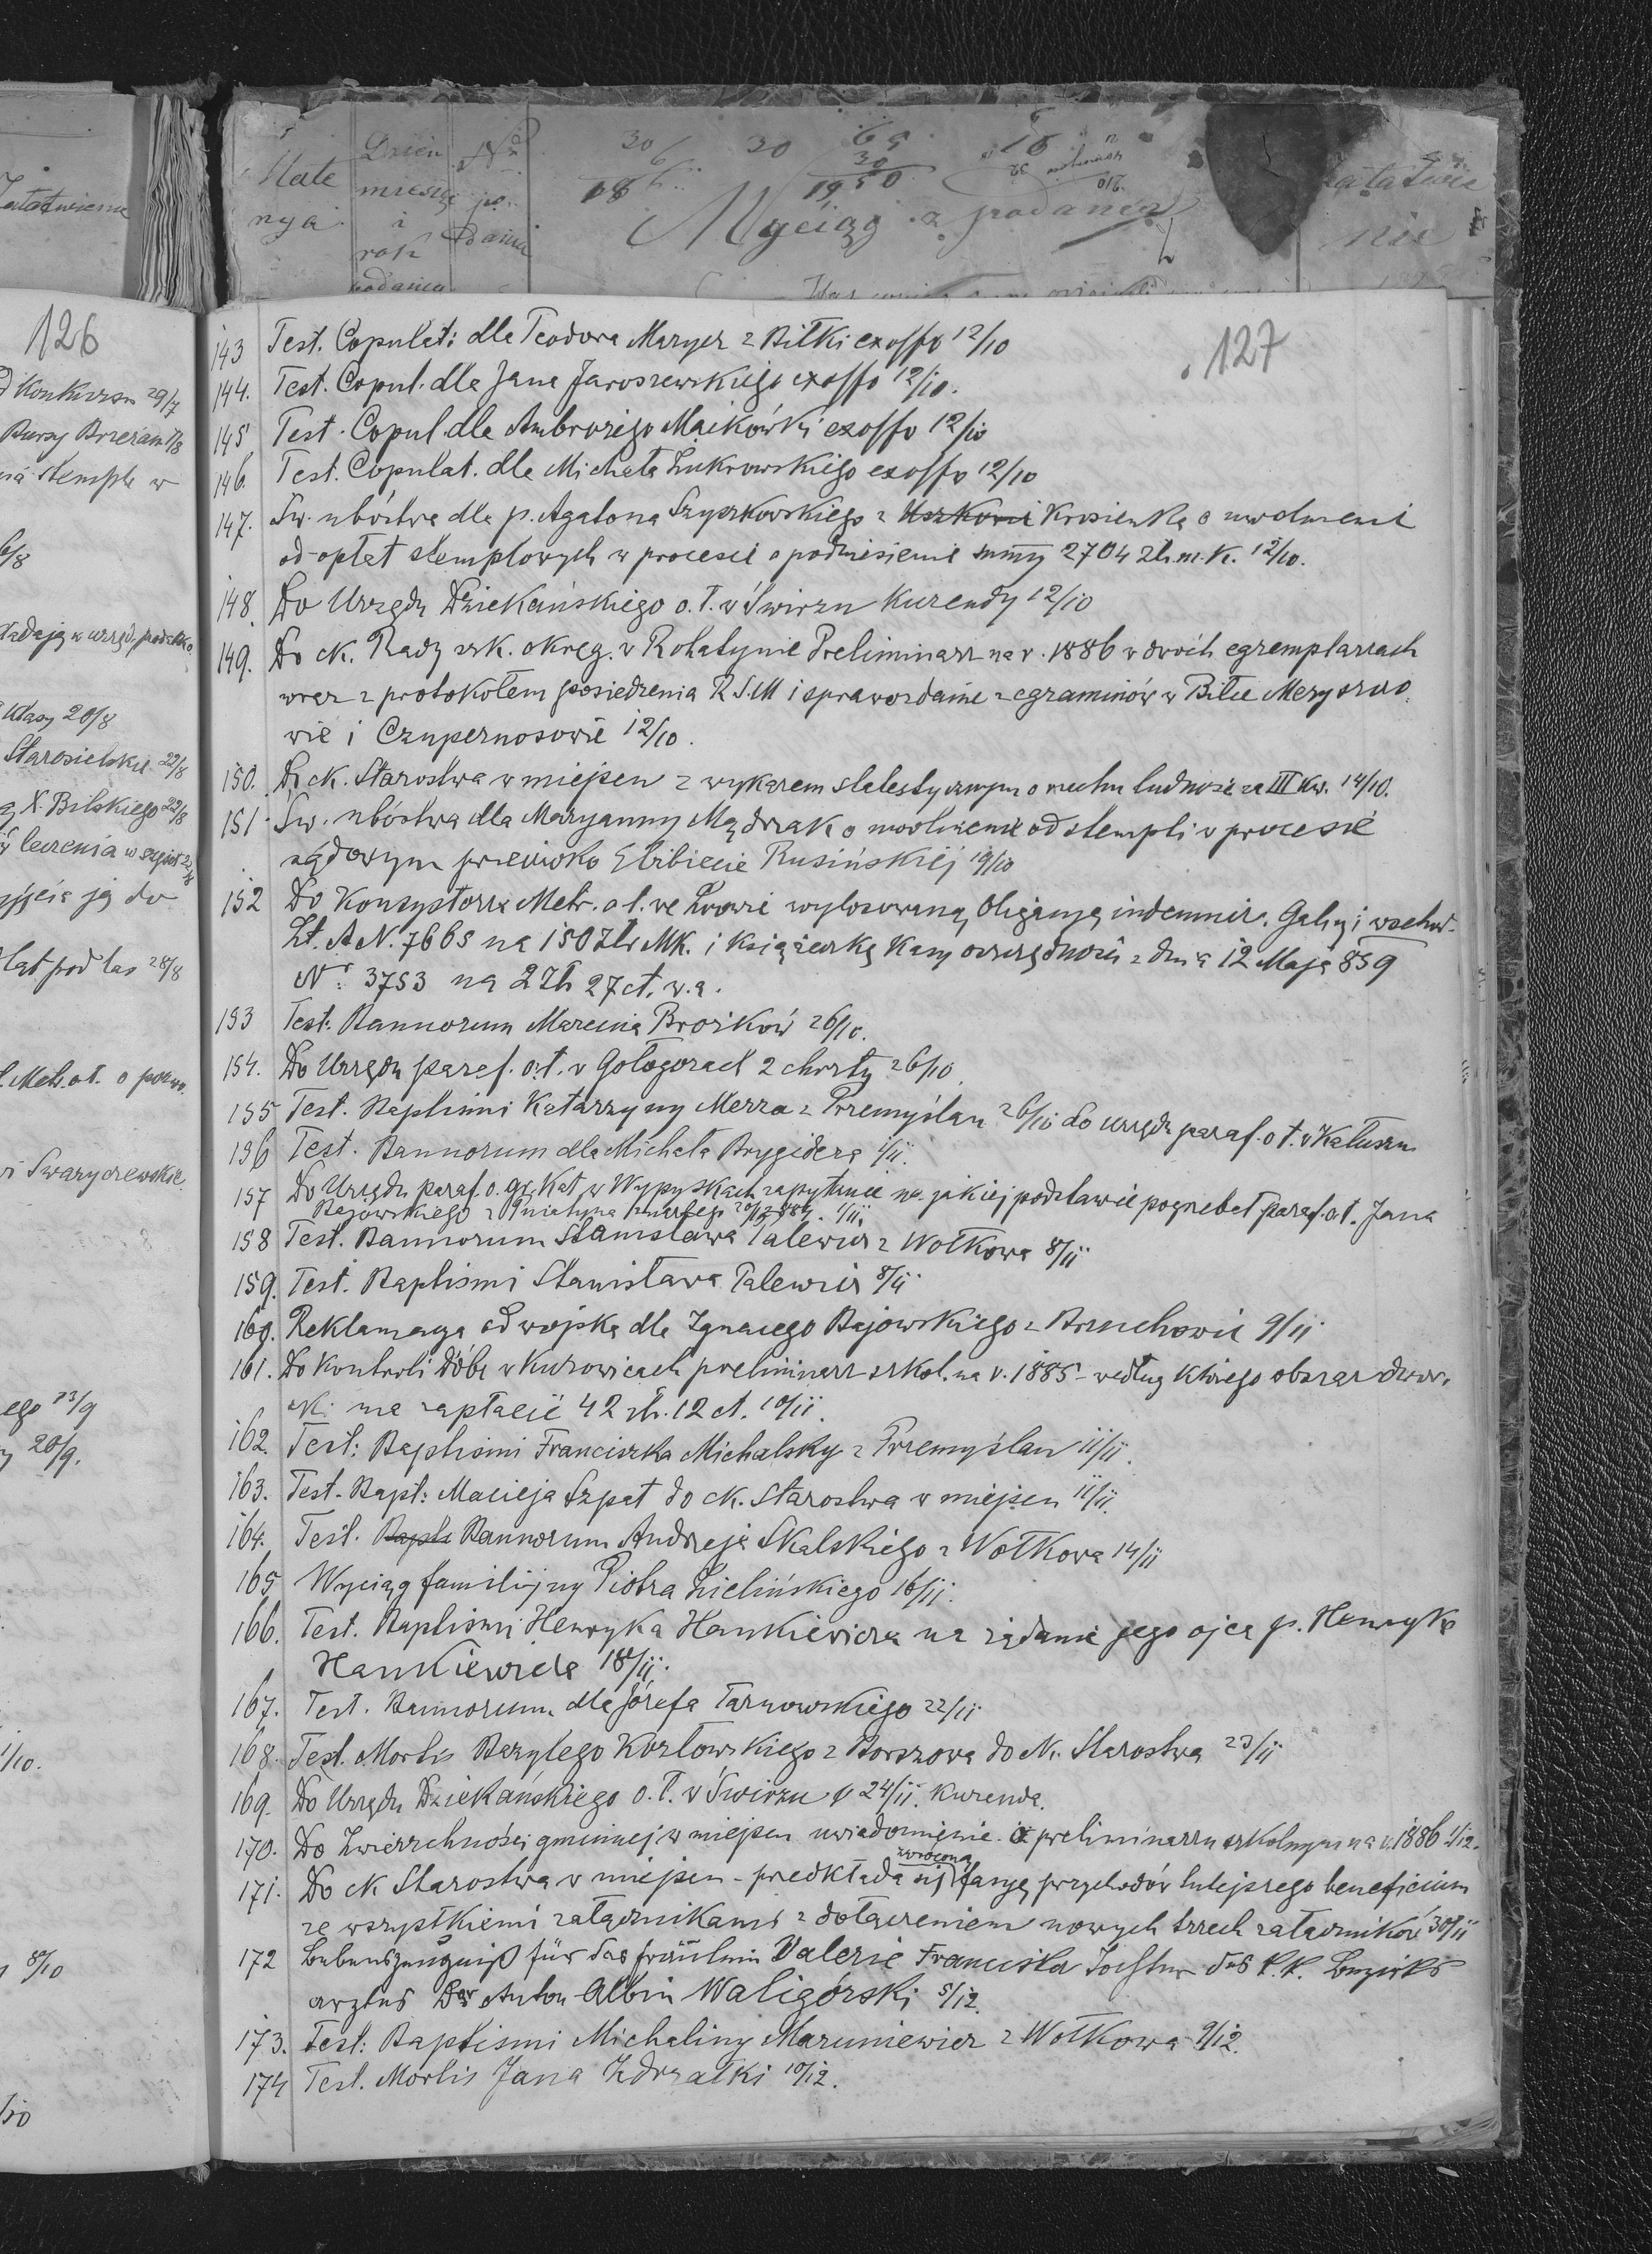 126
127
143 Test. Copulat: dla Teodora Maryer z Biłki exoffo 12/10
144. Test. Copul. dla Jana Jaroszewskiego exoffo 12/10.
145 Test. Copul. dla Ambrożego Maików exoffo 12/10
146. Test. Copulat. dla Michała Żukrowskiego exoffo 12/10
147. Św. ubóstwa dla p. Agatona Szyszkowskiego z Uszkowi Krosienka o uwolnieni
od opłat stemplowych w procesie o podniesienie sumy 2704 Zł. m. K. 12/10.
148. Do Urzędu Dziekańskiego o. ł. w Świrzu Kurendy 12/10
149. Do ck. Rady szk. okręg. w Rohatynie Preliminarz na r. 1886 w dwóch egzemplarzach
wraz z protokołem posiedzenia R.S.M i sprawozdanie z egzaminów w Biłce Meryszczo
wie i Czupernosowie 12/10.
150. Do ck. Starostwa w miejscu z wykazem statestycznym o ruchu ludności za III kw. 14/10.
151. Św. ubóstwa dla Maryanny Mądrzak o uwolnienie od stempli w procesie
sądowym przeciwko Elżbiecie Rusińskiej 19/10
152 Do Konsystorza Metr. o ł. we Lwowie wylosowaną Obligacyę indemniz. Galicyi wschod.
Lt. A N. 7665 na 150 Złr MK. i książeczkę Kasy oszczędności z dnia 12 Maja 859
Nr: 3753 na 2 Zł 27 ct. w. a.
153 Test: Bannorum Marcina Brosików 26/10.
154. Do Urzędu paraf. o. ł. w Gołogorach 2 chrzty 26/10
155 Test. Baptismi Katarzyny Merza z Przemyślan 26/10 do urzędu paraf. o ł. w Kałuszu
156 Test. Bannorum dla Michała Brygidera 1/11.
157 Do Urzędu paraf. o. gr. Kat. w Wypyskach zapytanie na jakiej podstawie pogrzebał paraf. o ł. Jana
Bajowskiego z Pniatyna zmarłego 20/12 884. 1/11.
158 Test. Bannorum Stanisława Palewicz z Wołkowa 8/11
159. Test. Baptismi Stanisława Palewicz 8/11
160. Reklamacya od wojska dla Ignacego Bajowskiego z Brzuchowic 9/11
161. Do Kontroli Dóbr w Kurowicach preliminarz szkol. na r. 1885 - według którego obszar dwor.
ski ma zapłacić 42 złr. 12 ct. 10/11.
162. Test: Baptismi Franciszka Michalsky z Przemyślan 11/11.
163. Test. Bapt: Macieja Szpat do ck. Starostwa w miejscu 11/11.
164. Test. Bapti Bannorum Andrzeja Skalskiego z Wołkowa 14/11
165 Wyciąg familijny Piotra Zielińskiego 16/11.
166. Test. Baptismi Henryka Hankiewicza na żądanie jego ojca p. Henryka
Hankiewicza 18/11.
167. Test. Bannorum dla Józefa Tarnowskiego 22/11
168. Test. Mortis Bazylego Kozłowskiego z Borszowa do ck. Starostwa 23/11
169. Do Urzędu Dziekańskiego o. ł. w Świrzu 24/11. Kurenda.
170. Do Zwierzchności gminnej w miejscu uwiadomienie o preliminarzu szkolnym na r. 1886 1/12.
171. Do ck Starostwa w miejscu - predkłada się zwróconą fasyę przychodów tutejszego beneficium
ze wszystkiemi załącznikami z dołączeniem nowych trzech załączników 30/11
172 Lebenszeugniß für das Fräulein Valerie Franciska Tochter des k. k. Bezirks
arztes Der Anton Albin Waligórski 5/12.
173. Test: Baptismi Michaliny Maruniewicz z Wołkowa 9/12.
174 Test. Mortis Jana Zdrzałki 10/12.